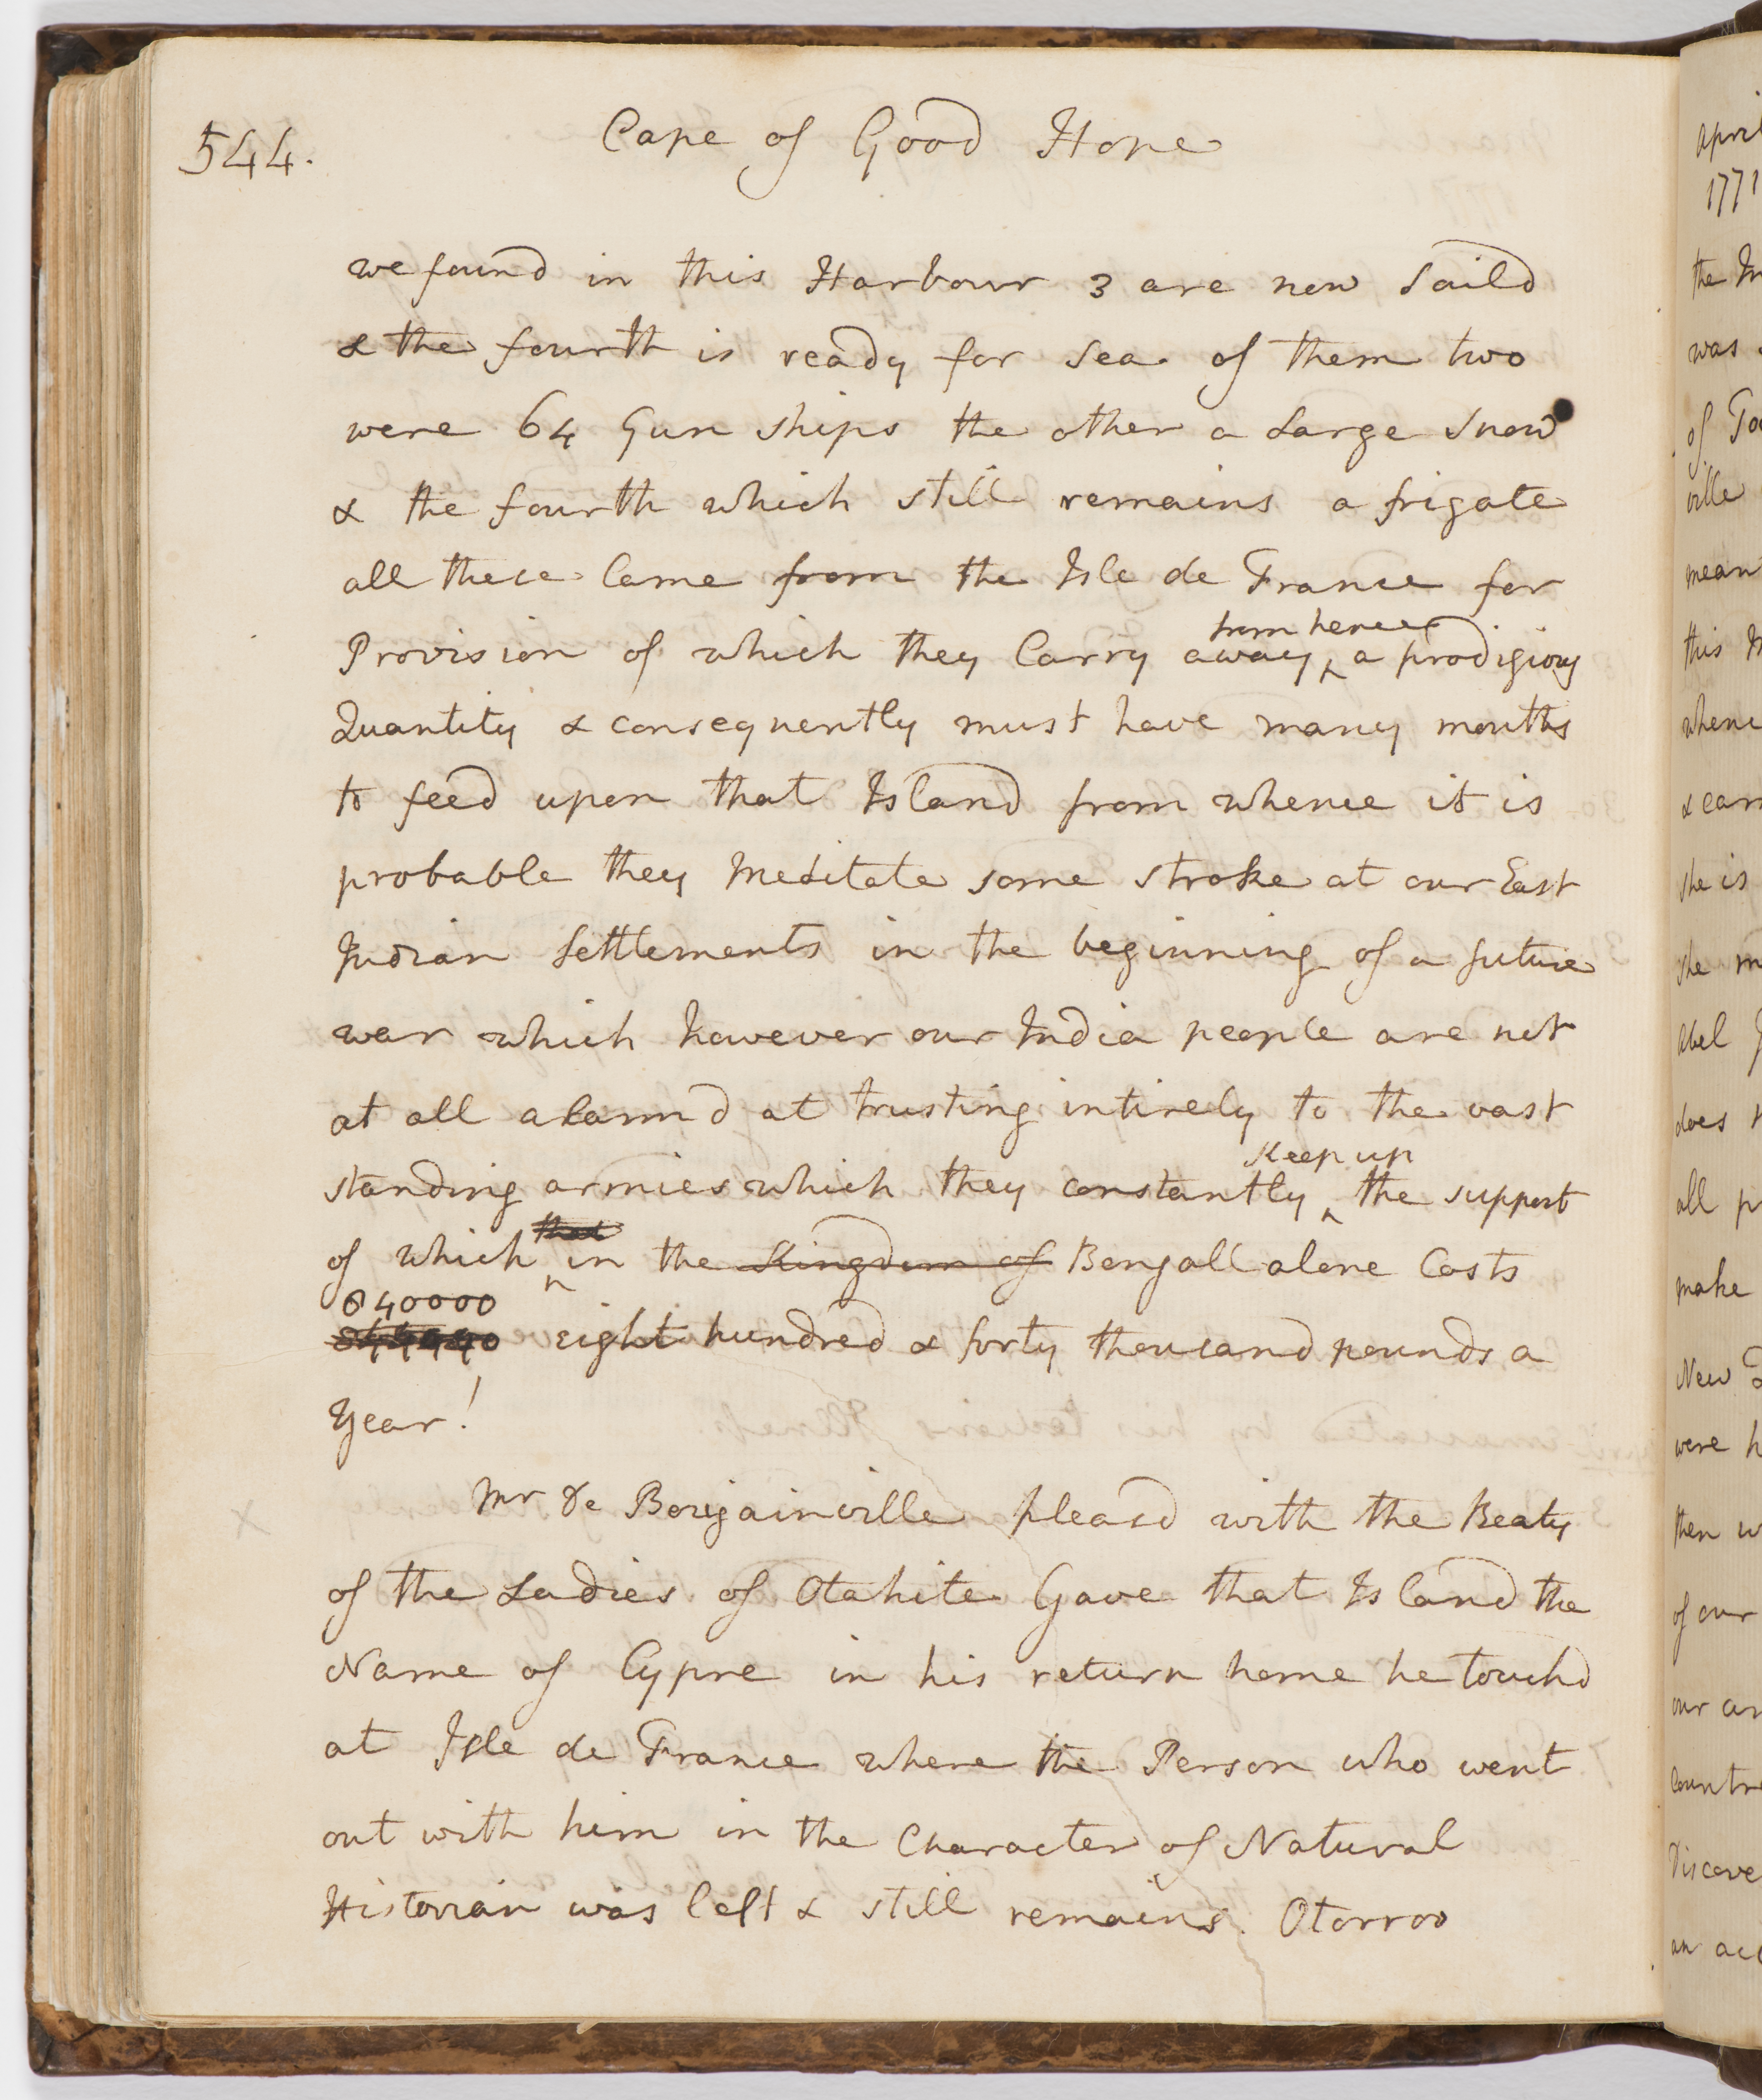 544.
Cape of Good Hope
we found in this Harbour 3 are now saild
& the fourth is ready for sea of them two
were 64 Gun ships the other a Large snow
& the fourth which still remains a frigate
all these Came from the Isle de France for
from hence
Provision of which they Carry away ‸ a prodigious
Quantity & consequently must have many mouths
to feed upon that Island from whence it is
probable they meditate some stroke at our East
Indian settlements in the beginning of a future
war which however our India people are not
at all alarmd at trusting intirely to the vast
Keep up
standing armies which they constantly ‸ the support
that
of which ‸ in the Kingdom of Bengall alone Costs
840000
eight hundred & forty thousand pounds a
Year!
Mr De Bougainville pleasd with the Beaty
of the Ladies of Otahite Gave that Island the
Name of Cypre in his return home he touchd
at Isle de France where the Person who went
out with him in the Character of Natural
Historian was left & still remains. Otorroo
April
1771
the
was
of
ville
mean
this
whenc
&
she is
she
abel
does
all
make
New
were
then
of our
our
Countr
Discove
an